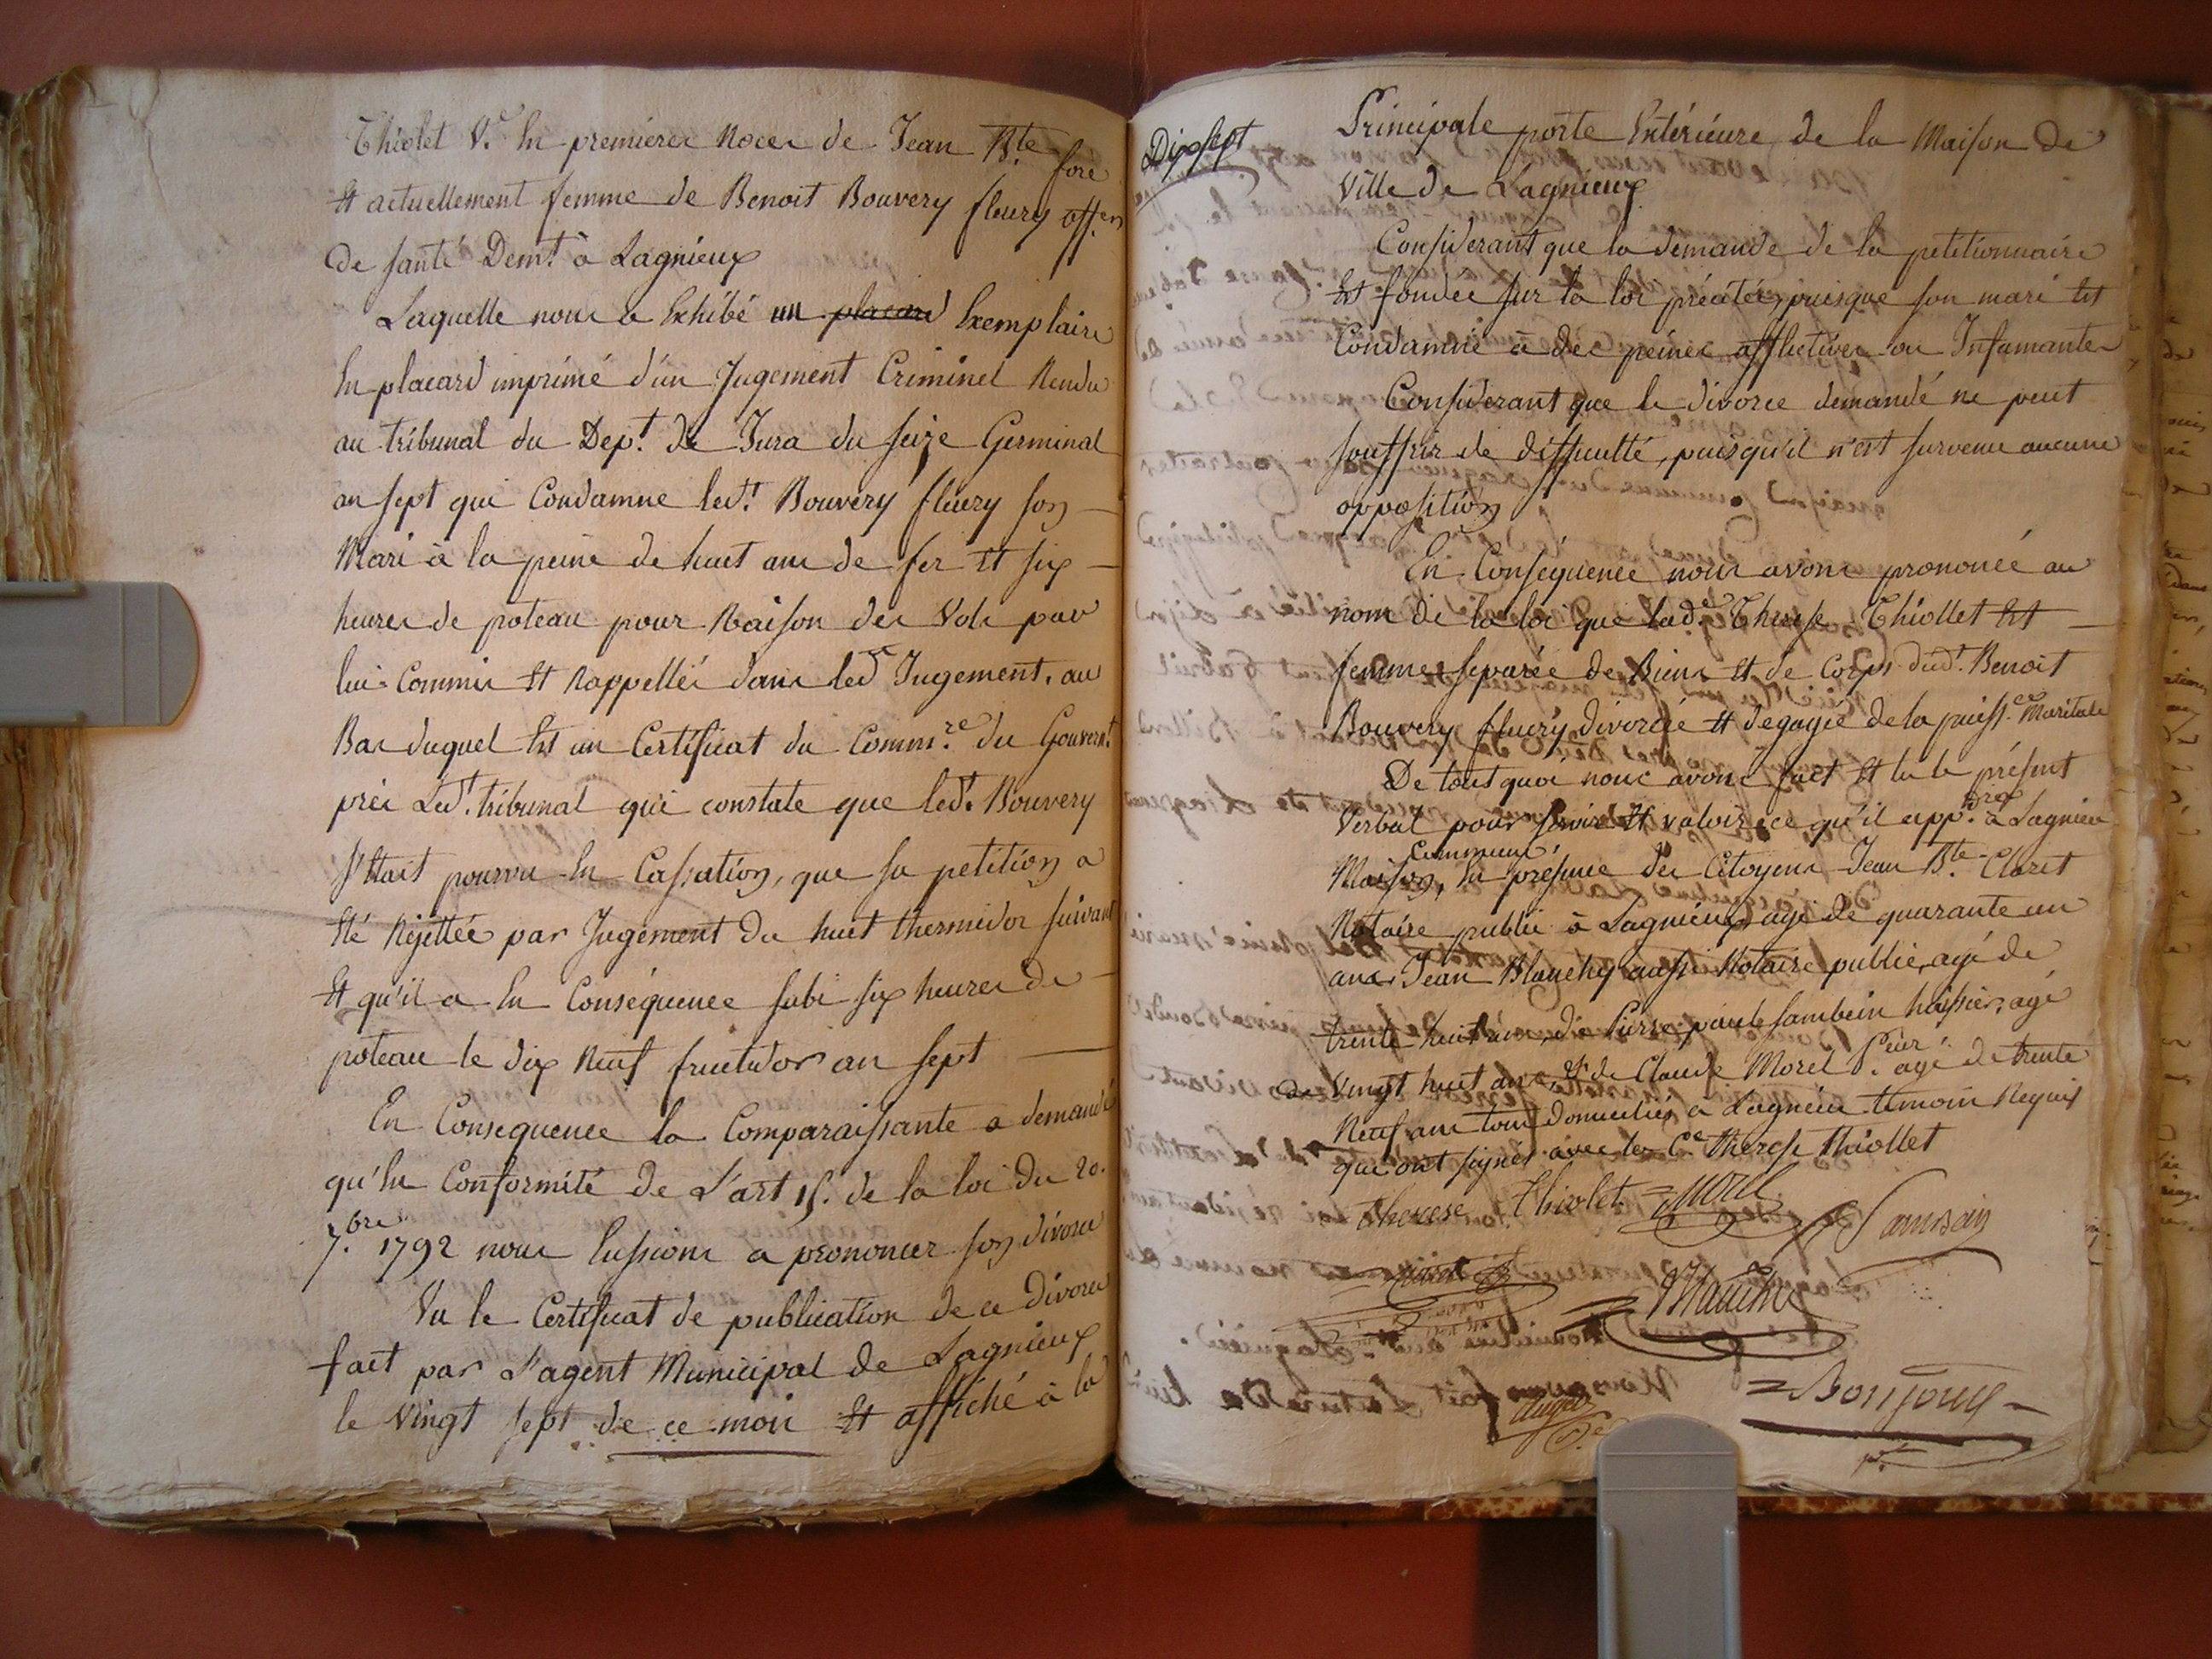 Thiolet V.e En premieres Noces de Jean Bte fore
Et actuellement femme de Benoit Bouvery fleury off.er
de santé Dem.t à Lagnieux
Laquelle nous a Exhibé un placard Exemplaire
En placard imprimé d'un Jugement Criminel Rendu
au tribunal du Dep.t du Jura du seize Germinal
an sept qui Condamne led.t Bouvery fleury son
Mari à la peine de huit ans de fer Et six
heures de poteau pour Raison des Vols par
lui Commis Et Rappellés dans led Jugement. au
Bas duquel Est un Certificat du Comm.re du Gouvern.t
près Led.t tribunal qui constate que led.t Bouvery
s'Etait pourvu En Cassation, que sa petition a
Eté Rejettée par Jugement du huit thermidor suivant
Et qu'il a En Conséquence subi six heures de
poteau le dix Neuf fructidor an sept
En Consequence la Comparaissante a demandé
qu'En Conformité de L'art 15. de la loi du 20.
7.bre 1792 nous Eussions a prononcer son divorce
Vu le Certificat de publication de ce divorce
fait par L'agent Municipal de Lagnieux
le Vingt sept de ce mois Et affiché à la
Dixsept
Principale porte Extérieure de la Maison de
Ville de Lagnieux
Considerant que la demande de la petitionnaire
Est fondée sur la loi précitée, puisque son mari Est
Condamné à des peines afflictives ou Infamantes
Considerant que le divorce demandé ne peut
souffrir de difficulté, puisqu'il n'est survenu aucune
opposition
En Conséquence nous avons prononcé au
nom de la loi que lad.e Therese Thiollet Est
femme separée de Biens Et de Corps dud.t Benoit
Bouvery fleury divorcée Et degagée de la puiss.ce Maritale
De tout quoi nous avons fait Et lu le présent
Verbal pour servir Et valoir à ce qu'il app.dra à Lagnieu
Commune,
Maison, En présence des Citoyens Jean Bte Claret
Notaire public à Lagnieux agé de quarante un
ans, Jean Blanchy aussi Notaire public, agé de
trente huit ans, de Pierre paule Sambein huissier, agé
de Vingt huit ans, Et de Claude Morel agé de trente
Neuf ans tous domiciliés a Lagnieu temoins Requis
qui ont signés avec les C.e therese thiollet
therese Thiolet Morel
Sambain
Claret
Blanchy
Bonjour